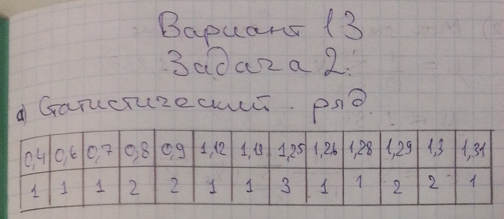 Вариант 13
Задача 2.
а) Статистический ряд
0,4 0,6 0,7 0,8 0,9 1,12 1,13 1,25 1,26 1,28 1,29 1,3 1,31
1 1 1 2 2 1 1 3 1 1 2 2 1